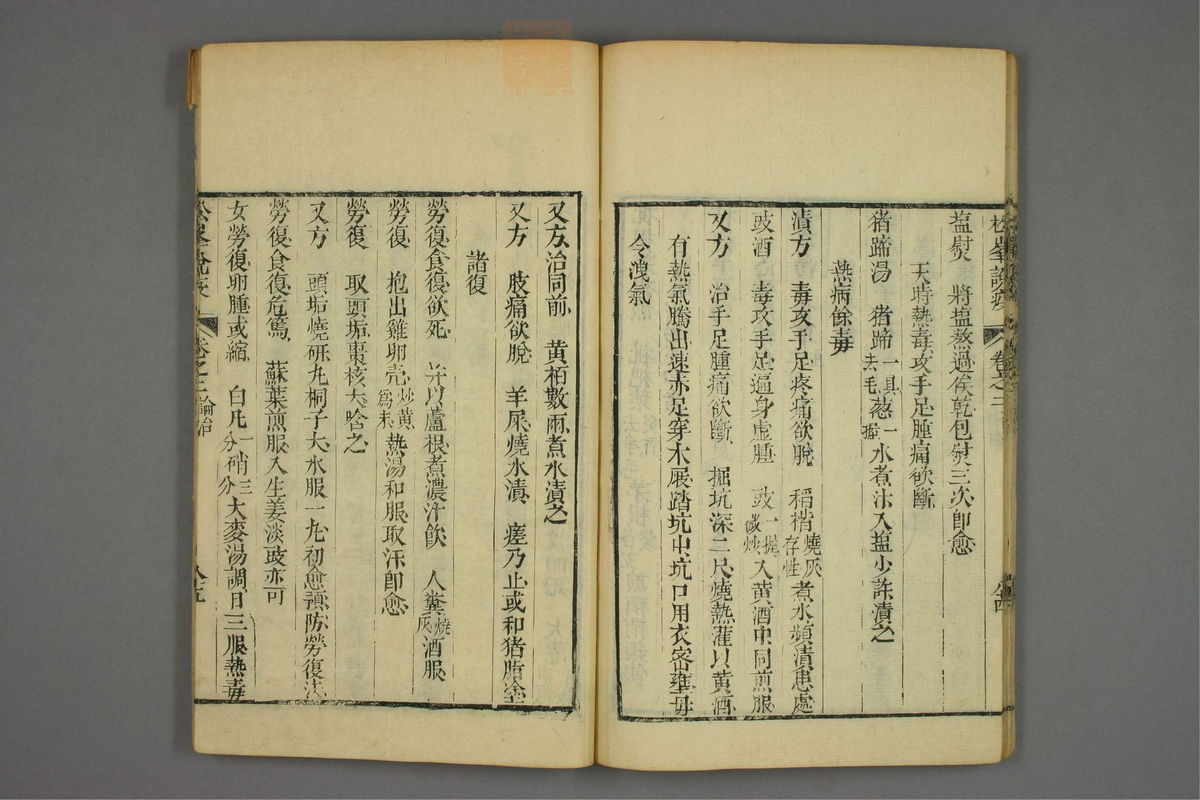 松峯說疫 卷之三 八十四
塩熨 將塩熬過俟乾包熨三次即愈
天時熱毒攻手足腫痛欲斷
猪蹄湯 猪蹄一具去毛葱一握水煮汁入塩少許漬之
熱病餘毒
漬方 治毒攻手足疼痛欲脫 稻稭燒灰存性煮水頻漬患處
豉酒 治毒攻手足遍身虛腫 豉一握微炒入黃酒中同煎服
又方 治手足腫痛欲斷 掘坑深二尺燒熱灌以黃酒
有熱氣騰出速赤足穿木屐踏坑中坑口用衣密壅毋
令洩氣
又方治同前 黃栢數兩煮水漬之
又方 肢痛欲脫 羊屎燒水漬 瘥乃止或和猪脂塗
諸復
勞復食復欲死 并以蘆根煮濃汁飲 人糞燒灰酒服
勞復 抱出雞卵壳炒黃為末熱湯和服取汗即愈
勞復 取頭垢棗核大唅之
又方 頭垢燒研丸桐子大水服一丸初愈預防勞復法
勞復食復危篤 蘇葉煎服入生姜淡豉亦可
女勞復卵腫或縮 白凡一分硝三分大麥湯調日三服熱毒
松峯說疫 卷之三 論治 八十五